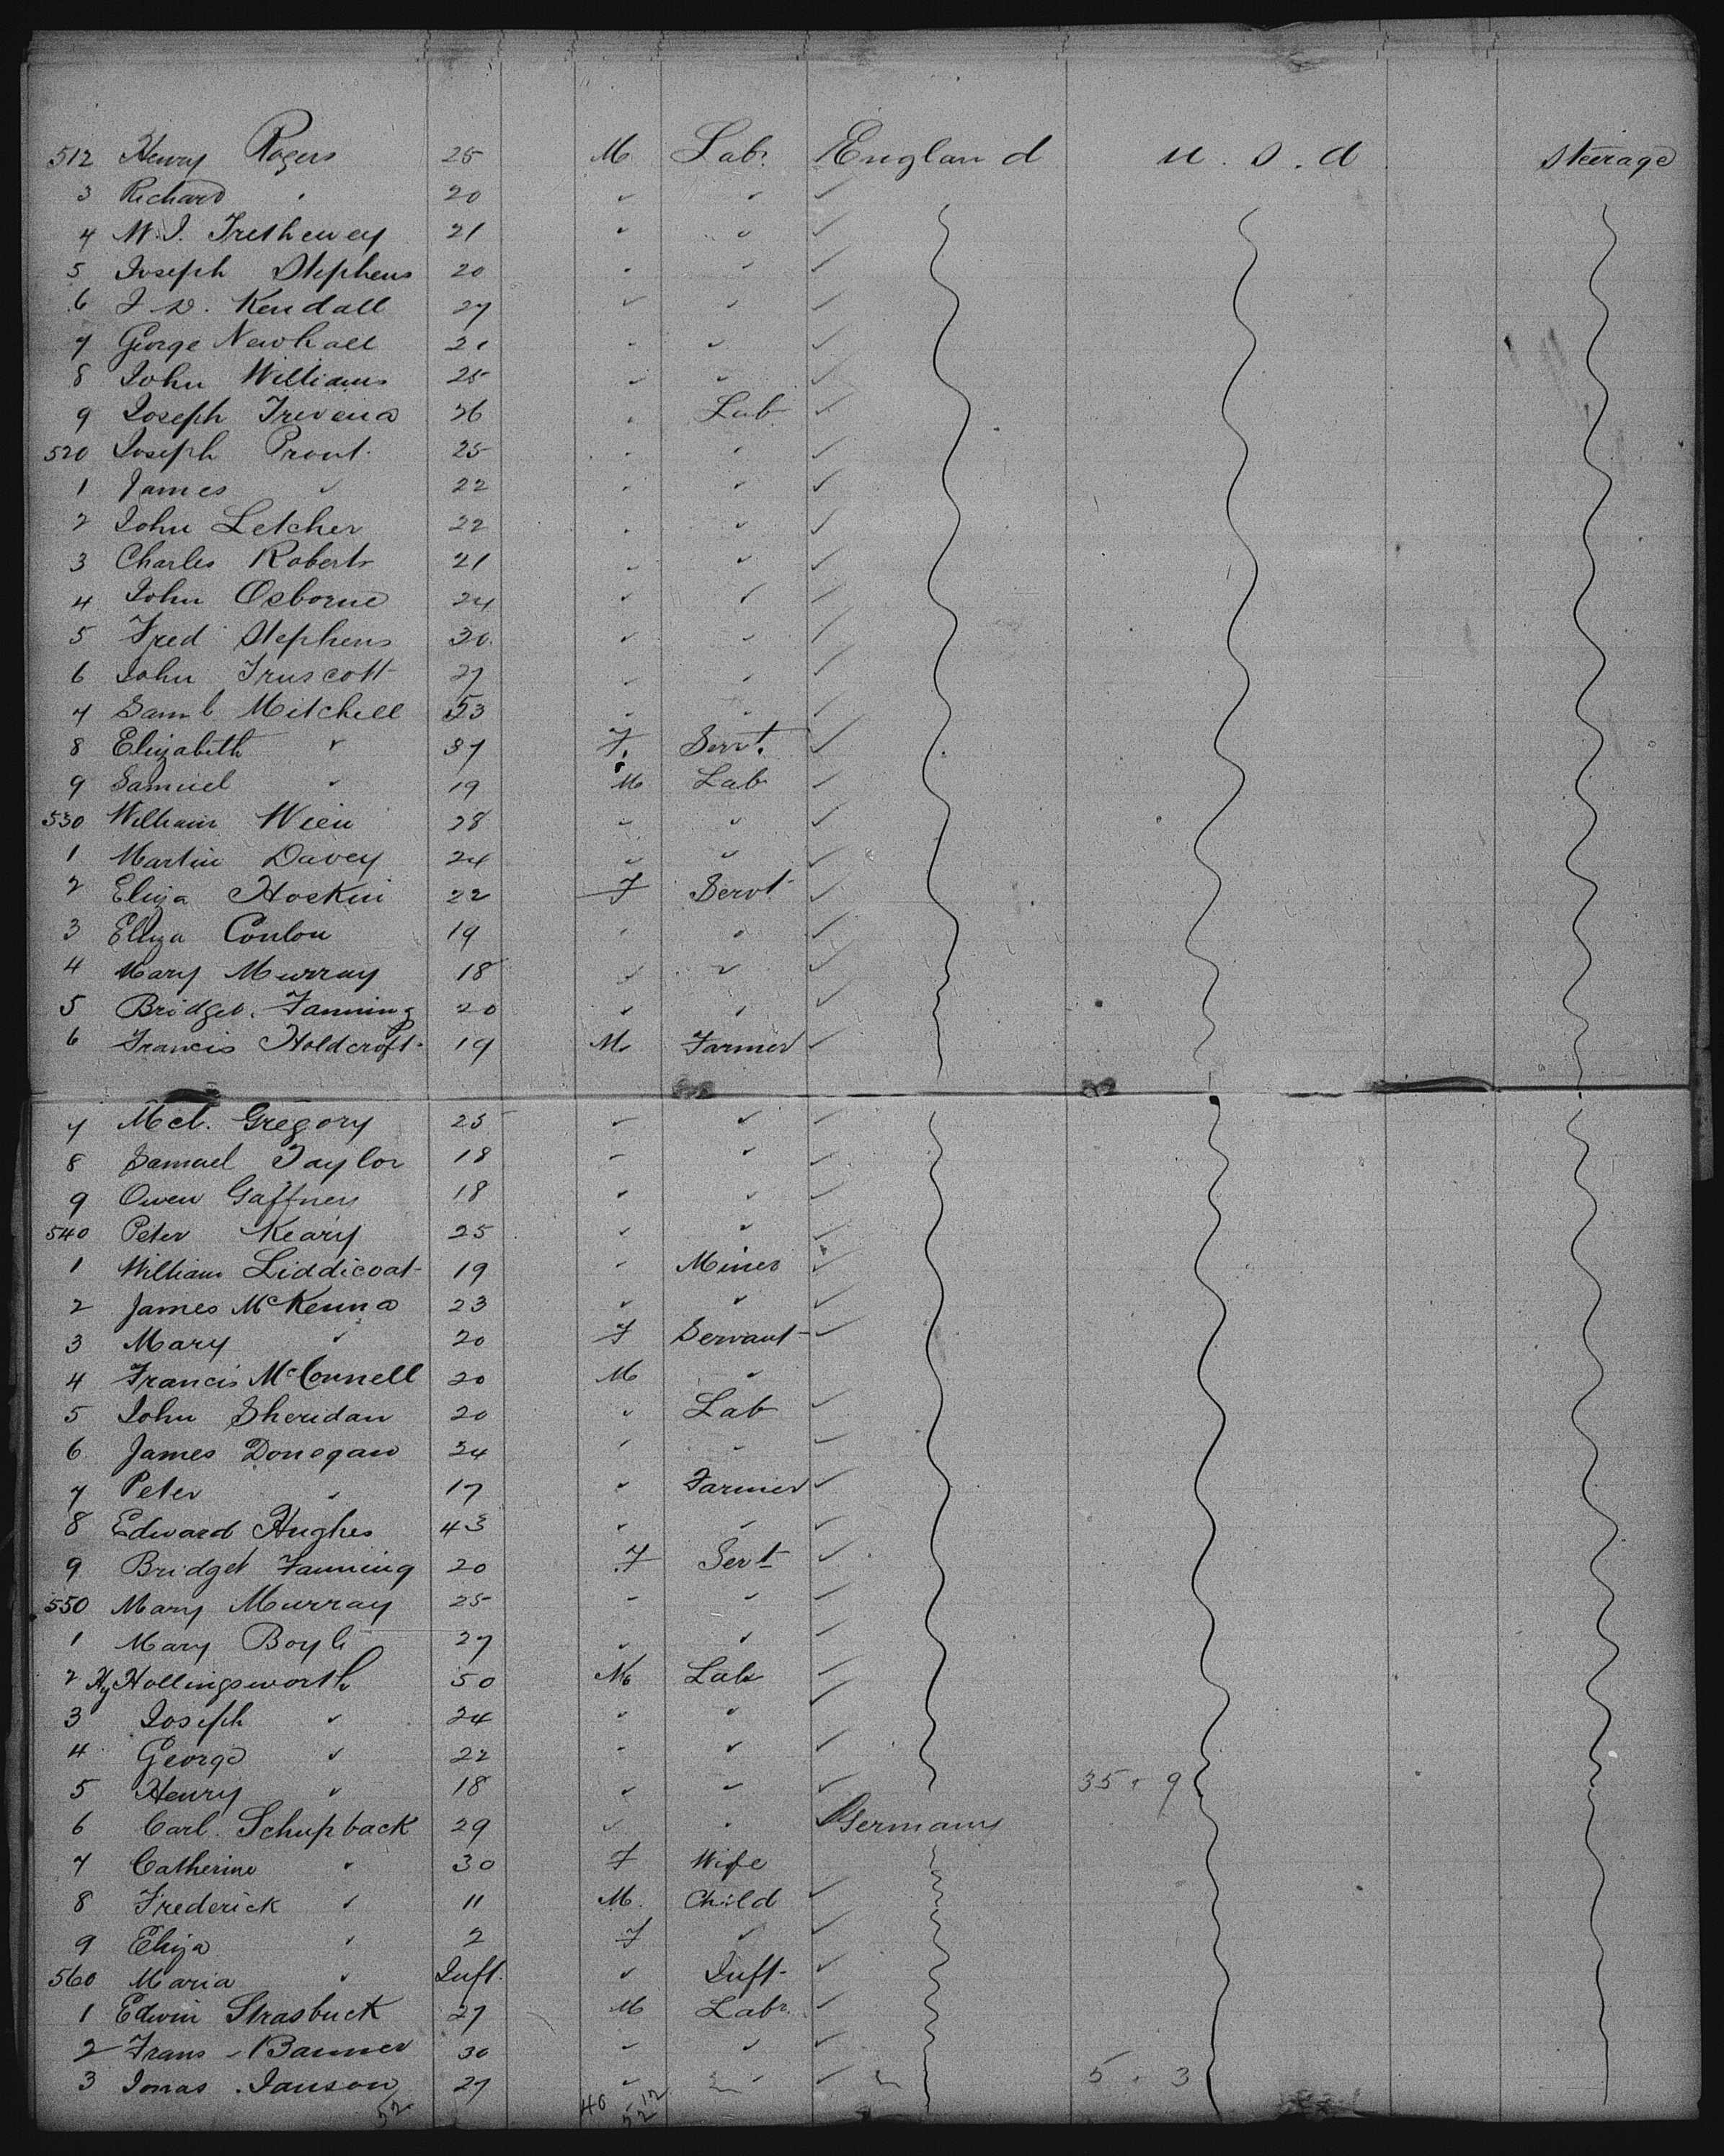 512 Henry Rogers 25 M Labr. England U.S.A Steerage
3 Richard " 20 " " "
4 W.J. Trethewey 21 " " "
5 Joseph Stephens 20 " " "
6 J D. Kendall 27 " " "
7 George Newhall 21 " " "
8 John Williams 25 " " "
9 Joseph Trevena 36 " Lab "
520 Joseph Prout 25 " " "
1 James " 22 " " "
2 John Letcher 22 " " "
3 Charles Roberts 21 " " "
4 John Osborne 24 " " "
5 Fred Stephens 30 " " "
6 John Truscott 27 " " "
7 Saml Mitchell 53 " " "
8 Elizabeth " 37 F. Servt. "
9 Samuel " 19 M Lab "
530 William 28 " " "
1 Martin Davey 24 " " "
2 Eliza Hoskin 22 F Servt "
3 Eliza Conlon 19 " " "
4 Mary Murray 18 " " "
5 Bridget Fanning 20 " " "
6 Francis Holdcroft 19 M Farmer "
7 Gregory 25 " " "
8 Samuel Taylor 18 " " "
9 Owen Gaffney 18 " " "
540 Peter Keary 25 " " "
1 William Liddicoat 19 " Miner "
2 James McKenna 23 " " "
3 Mary " 20 F Servant "
4 Francis McConnell 20 M "
5 John Sheridan 20 " Lab "
6 James Donegan 24 " " "
7 Peter " 17 " Farmer "
8 Edward Hughes 43 " " "
9 Bridget Fanning 20 F Servt "
550 Mary Murray 25 " " "
1 Mary Boyle 27 " " "
2 Hy Hollingsworth 50 M Lab "
3 Joseph " 24 " " "
4 George " 22 " " "
5 Henry " 18 " " " 35 . 9
6 Carl Schupback 29 " " Germany
7 Catherine " 30 F Wife
8 Frederick " 11 M. Child "
9 Eliza " 2 F " "
560 Maria " Inft. " Inft "
1 Edwin Strasbuck 27 M Labr. "
2 Frans Banner 30 " " "
3 Jonas Janson 27 " " " 5 . 3
52 40 12
52